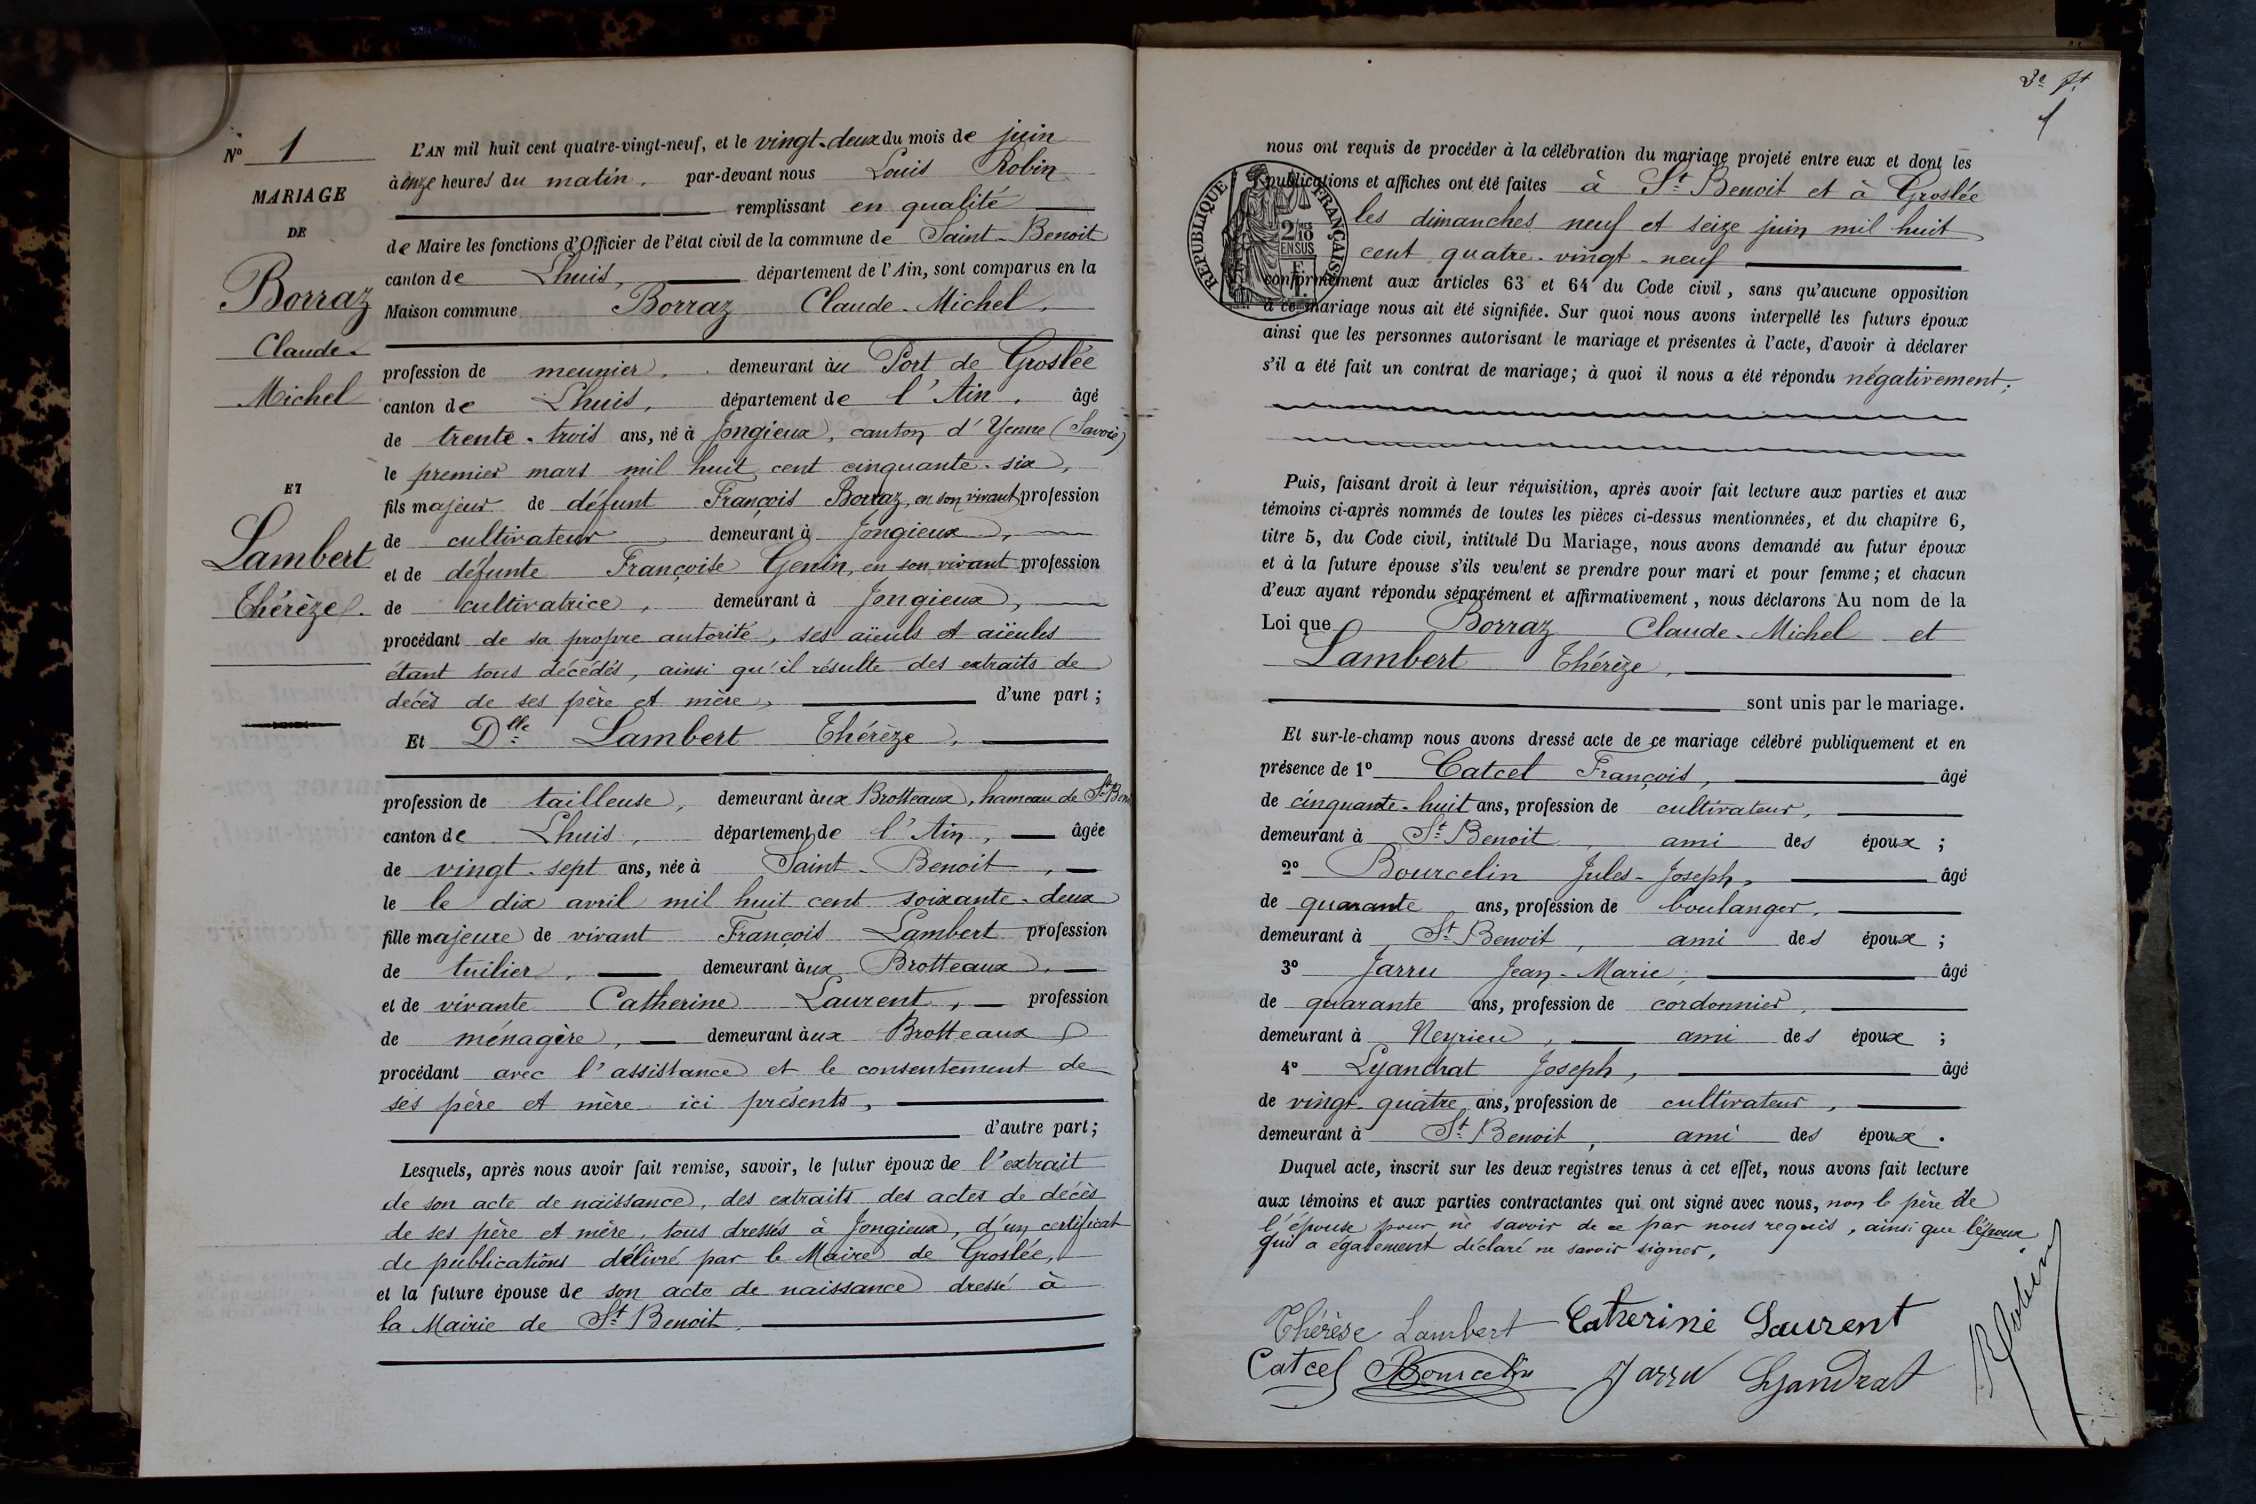 N° 1
MARIAGE
DE
Borraz
Claude-
Michel
ET
Lambert
Thérèze.
L'AN mil huit cent quatre-vingt-neuf, et le vingt-deux du mois de juin
à onze heures du matin, par-devant nous Louis Robin
remplissant en qualité
de Maire les fonctions d'Officier de l'état civil de la commune de Saint-Benoit
canton de Lhuis, département de l'Ain, sont comparus en la
Maison commune Borraz Claude-Michel,
profession de meunier, demeurant au Port de Groslée
canton de Lhuis, département de l'Ain, âgé
de trente-trois ans, né à Jongieux, canton d'Yenne (Savoie)
le premier mars mil huit cent cinquante-six,
fils majeur de défunt François Borraz, en son vivant profession
de cultivateur demeurant à Jongieux,
et de défunte Françoise Genin, en son vivant profession
de cultivatrice, demeurant à Jongieux,
procédant de sa propre autorité, ses aïeuls et aïeules
étant tous décédés, ainsi qu'il résulte des extraits de
décès de ses père et mère, d'une part;
Et Dlle Lambert Thérèze,
profession de tailleuse, demeurant aux Brotteaux, hameau de St Ben
canton de Lhuis, département de l'Ain, âgée
de vingt-sept ans, née à Saint-Benoit,
le le dix avril mil huit cent soixante-deux
fille majeure de vivant François Lambert profession
de tuilier, demeurant aux Brotteaux,
et de vivante Catherine Laurent, profession
de ménagère, demeurant aux Brotteaux
procédant avec l'assistance et le consentement de
ses père et mère ici présents,
d'autre part;
Lesquels, après nous avoir fait remise, savoir, le futur époux de l'extrait
de son acte de naissance, des extraits des actes de décès
de ses père et mère, tous dressés à Jongieux, d'un certificat
de publications délivré par le Maire de Groslée,
et la future épouse de son acte de naissance dressé à
la Mairie de St Benoit.
1
nous ont requis de procéder à la célébration du mariage projeté entre eux et dont les
publications et affiches ont été faites à St Benoit et à Groslée
les dimanches neuf et seize juin mil huit
cent quatre-vingt-neuf
conformément aux articles 63 et 64 du Code civil, sans qu'aucune opposition
à ce mariage nous ait été signifiée. Sur quoi nous avons interpellé les futurs époux
ainsi que les personnes autorisant le mariage et présentes à l'acte, d'avoir à déclarer
s'il a été fait un contrat de mariage; à quoi il nous a été répondu négativement;
RÉPUBLIQUE FRANÇAISE
2/10
EN SUS
Puis, faisant droit à leur réquisition, après avoir fait lecture aux parties et aux
témoins ci-après nommés de toutes les pièces ci-dessus mentionnées, et du chapitre 6,
titre 5, du Code civil, intitulé Du Mariage, nous avons demandé au futur époux
et à la future épouse s'ils veulent se prendre pour mari et pour femme; et chacun
d'eux ayant répondu séparément et affirmativement, nous déclarons Au nom de la
Loi que Borraz Claude-Michel et
Lambert Thérèze,
sont unis par le mariage.
Et sur-le-champ nous avons dressé acte de ce mariage célébré publiquement et en
présence de 1° Catcel François, âgé
de cinquante-huit ans, profession de cultivateur,
demeurant à St Benoit, ami des époux;
2° Bourcelin Jules-Joseph, âgé
de quarante ans, profession de boulanger,
demeurant à St Benoit, ami des époux;
3° Jarru Jean-Marie, âgé
de quarante ans, profession de cordonnier,
demeurant à Neyrieu, ami des époux;
4° Lyandrat Joseph, âgé
de vingt-quatre ans, profession de cultivateur,
demeurant à St Benoit, ami des époux.
Duquel acte, inscrit sur les deux registres tenus à cet effet, nous avons fait lecture
aux témoins et aux parties contractantes qui ont signé avec nous, non le père de
l'épouse pour ne savoir de ce par nous requis, ainsi que l'époux
qui a également déclaré ne savoir signer.
Thérèse Lambert Catherine Laurent
Catcel Bourcelin Jarru Lyandrat
Robin